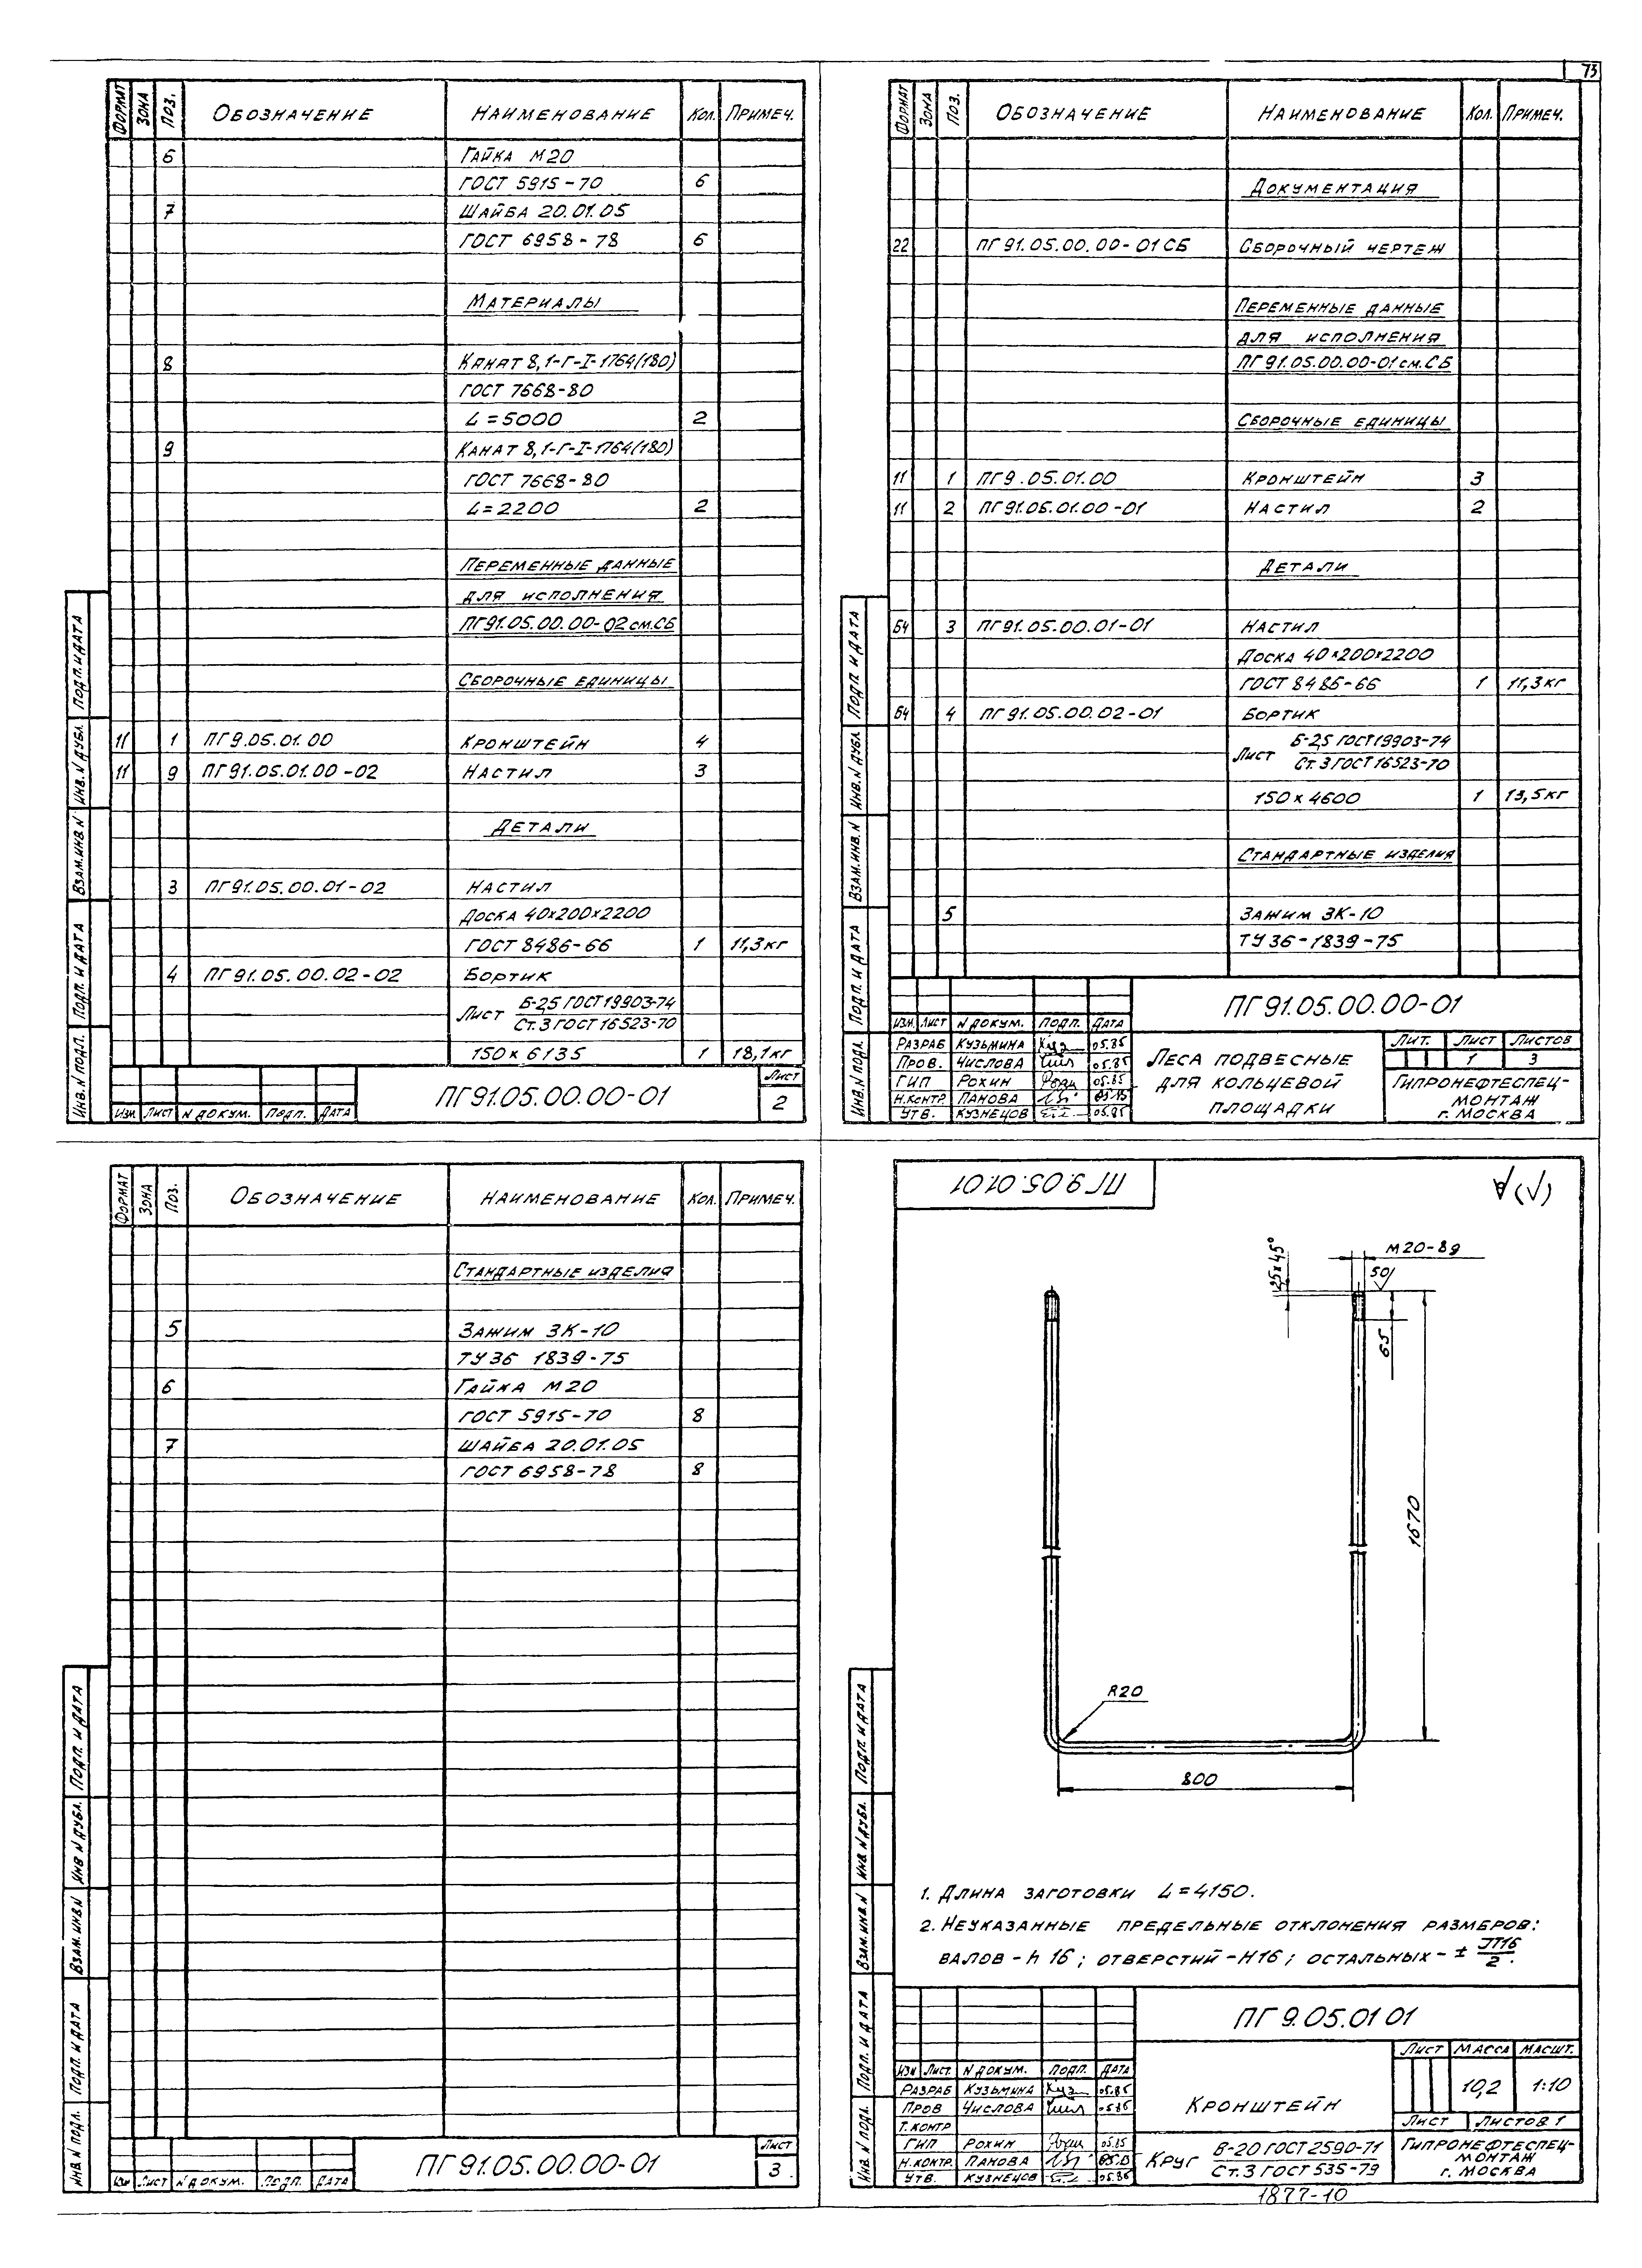 73
ФОРМАТ ЗОНА ПОЗ. ОБОЗНАЧЕНИЕ НАИМЕНОВАНИЕ КОЛ. ПРИМЕЧ.
6 ГАЙКА М20
ГОСТ 5915-70 6
7 ШАЙБА 20.01.05
ГОСТ 6958-78 6
МАТЕРИАЛЫ
8 КАНАТ 8,1-Г-I-1764(180)
ГОСТ 7668-80
L=5000 2
9 КАНАТ 8,1-Г-I-1764(180)
ГОСТ 7668-80
L=2200 2
ПЕРЕМЕННЫЕ ДАННЫЕ
ДЛЯ ИСПОЛНЕНИЯ
ПГ91.05.00.00-02 см.СБ
СБОРОЧНЫЕ ЕДИНИЦЫ
11 1 ПГ9.05.01.00 КРОНШТЕЙН 4
11 9 ПГ91.05.01.00-02 НАСТИЛ 3
ДЕТАЛИ
3 ПГ91.05.00.01-02 НАСТИЛ
ДОСКА 40х200х2200
ГОСТ 8486-66 1 11,3кг
4 ПГ91.05.00.02-02 БОРТИК
ЛИСТ Б-2,5 ГОСТ 19903-74
Ст.3 ГОСТ 16523-70
150х6135 1 18,1кг
ПГ91.05.00.00-01
ЛИСТ
2
ИЗМ ЛИСТ N ДОКУМ. ПОДП. ДАТА
ИНВ.N ПОДЛ. ПОДП. И ДАТА ВЗАМ.ИНВ.N ИНВ.N ДУБЛ. ПОДП. И ДАТА
ФОРМАТ ЗОНА ПОЗ. ОБОЗНАЧЕНИЕ НАИМЕНОВАНИЕ КОЛ. ПРИМЕЧ.
ДОКУМЕНТАЦИЯ
22 ПГ91.05.00.00-01СБ СБОРОЧНЫЙ ЧЕРТЕЖ
ПЕРЕМЕННЫЕ ДАННЫЕ
ДЛЯ ИСПОЛНЕНИЯ
ПГ91.05.00.00-01 см.СБ
СБОРОЧНЫЕ ЕДИНИЦЫ
11 1 ПГ9.05.01.00 КРОНШТЕЙН 3
11 2 ПГ91.05.01.00-01 НАСТИЛ 2
ДЕТАЛИ
Б4 3 ПГ91.05.00.01-01 НАСТИЛ
ДОСКА 40х200х2200
ГОСТ 8486-66 1 11,3кг
Б4 4 ПГ91.05.00.02-01 БОРТИК
ЛИСТ Б-2,5 ГОСТ 19903-74
Ст.3 ГОСТ 16523-70
150х4600 1 13,5кг
СТАНДАРТНЫЕ ИЗДЕЛИЯ
5 ЗАЖИМ ЗК-10
ТУ36-1839-75
ПГ91.05.00.00-01
ИЗМ. ЛИСТ N ДОКУМ. ПОДП. ДАТА
РАЗРАБ КУЗЬМИНА 05.85
ПРОВ. ЧИСЛОВА 05.85
ГИП РОХИН 05.85
Н.КОНТР. ПАНОВА
УТВ. КУЗНЕЦОВ 05.85
ЛЕСА ПОДВЕСНЫЕ
ДЛЯ КОЛЬЦЕВОЙ
ПЛОЩАДКИ
ЛИТ. ЛИСТ ЛИСТОВ
1 3
ГИПРОНЕФТЕСПЕЦ-
МОНТАЖ
г. МОСКВА
ИНВ.N ПОДЛ. ПОДП. И ДАТА ВЗАМ.ИНВ.N ИНВ.N ДУБЛ. ПОДП И ДАТА
ФОРМАТ ЗОНА ПОЗ. ОБОЗНАЧЕНИЕ НАИМЕНОВАНИЕ КОЛ. ПРИМЕЧ.
СТАНДАРТНЫЕ ИЗДЕЛИЯ
5 ЗАЖИМ ЗК-10
ТУ36 1839-75
6 ГАЙКА М20
ГОСТ 5915-70 8
7 ШАЙБА 20.01.05
ГОСТ 6958-78 8
ПГ91.05.00.00-01
ЛИСТ
3
ИЗМ ЛИСТ N ДОКУМ. ПОДП. ДАТА
ИНВ.N ПОДЛ. ПОДП. И ДАТА ВЗАМ.ИНВ.N ИНВ N ДУБЛ. ПОДП. И ДАТА
ПГ9.05.01.01
(√)
М20-8g
25х45°
50
65
1670
R20
800
1. ДЛИНА ЗАГОТОВКИ L=4150.
2. НЕУКАЗАННЫЕ ПРЕДЕЛЬНЫЕ ОТКЛОНЕНИЯ РАЗМЕРОВ:
ВАЛОВ-h16; ОТВЕРСТИЙ-Н16; ОСТАЛЬНЫХ-± JT16/2.
ПГ9.05.01 01
ИЗМ ЛИСТ. N ДОКУМ. ПОДП. ДАТА
РАЗРАБ КУЗЬМИНА 05.85
ПРОВ ЧИСЛОВА 05.85
Т.КОНТР
ГИП РОХИН 05.85
Н.КОНТР. ПАНОВА
УТВ. КУЗНЕЦОВ 05.85
КРОНШТЕЙН
ЛИСТ МАССА МАСШТ.
10,2 1:10
ЛИСТ ЛИСТОВ 1
КРУГ В-20 ГОСТ 2590-71
Ст.3 ГОСТ 535-79
ГИПРОНЕФТЕСПЕЦ-
МОНТАЖ
г. МОСКВА
ИНВ. N ПОДЛ. ПОДП. И ДАТА ВЗАМ.ИНВ.N ИНВ. N ДУБЛ. ПОДП. И ДАТА
1877-10